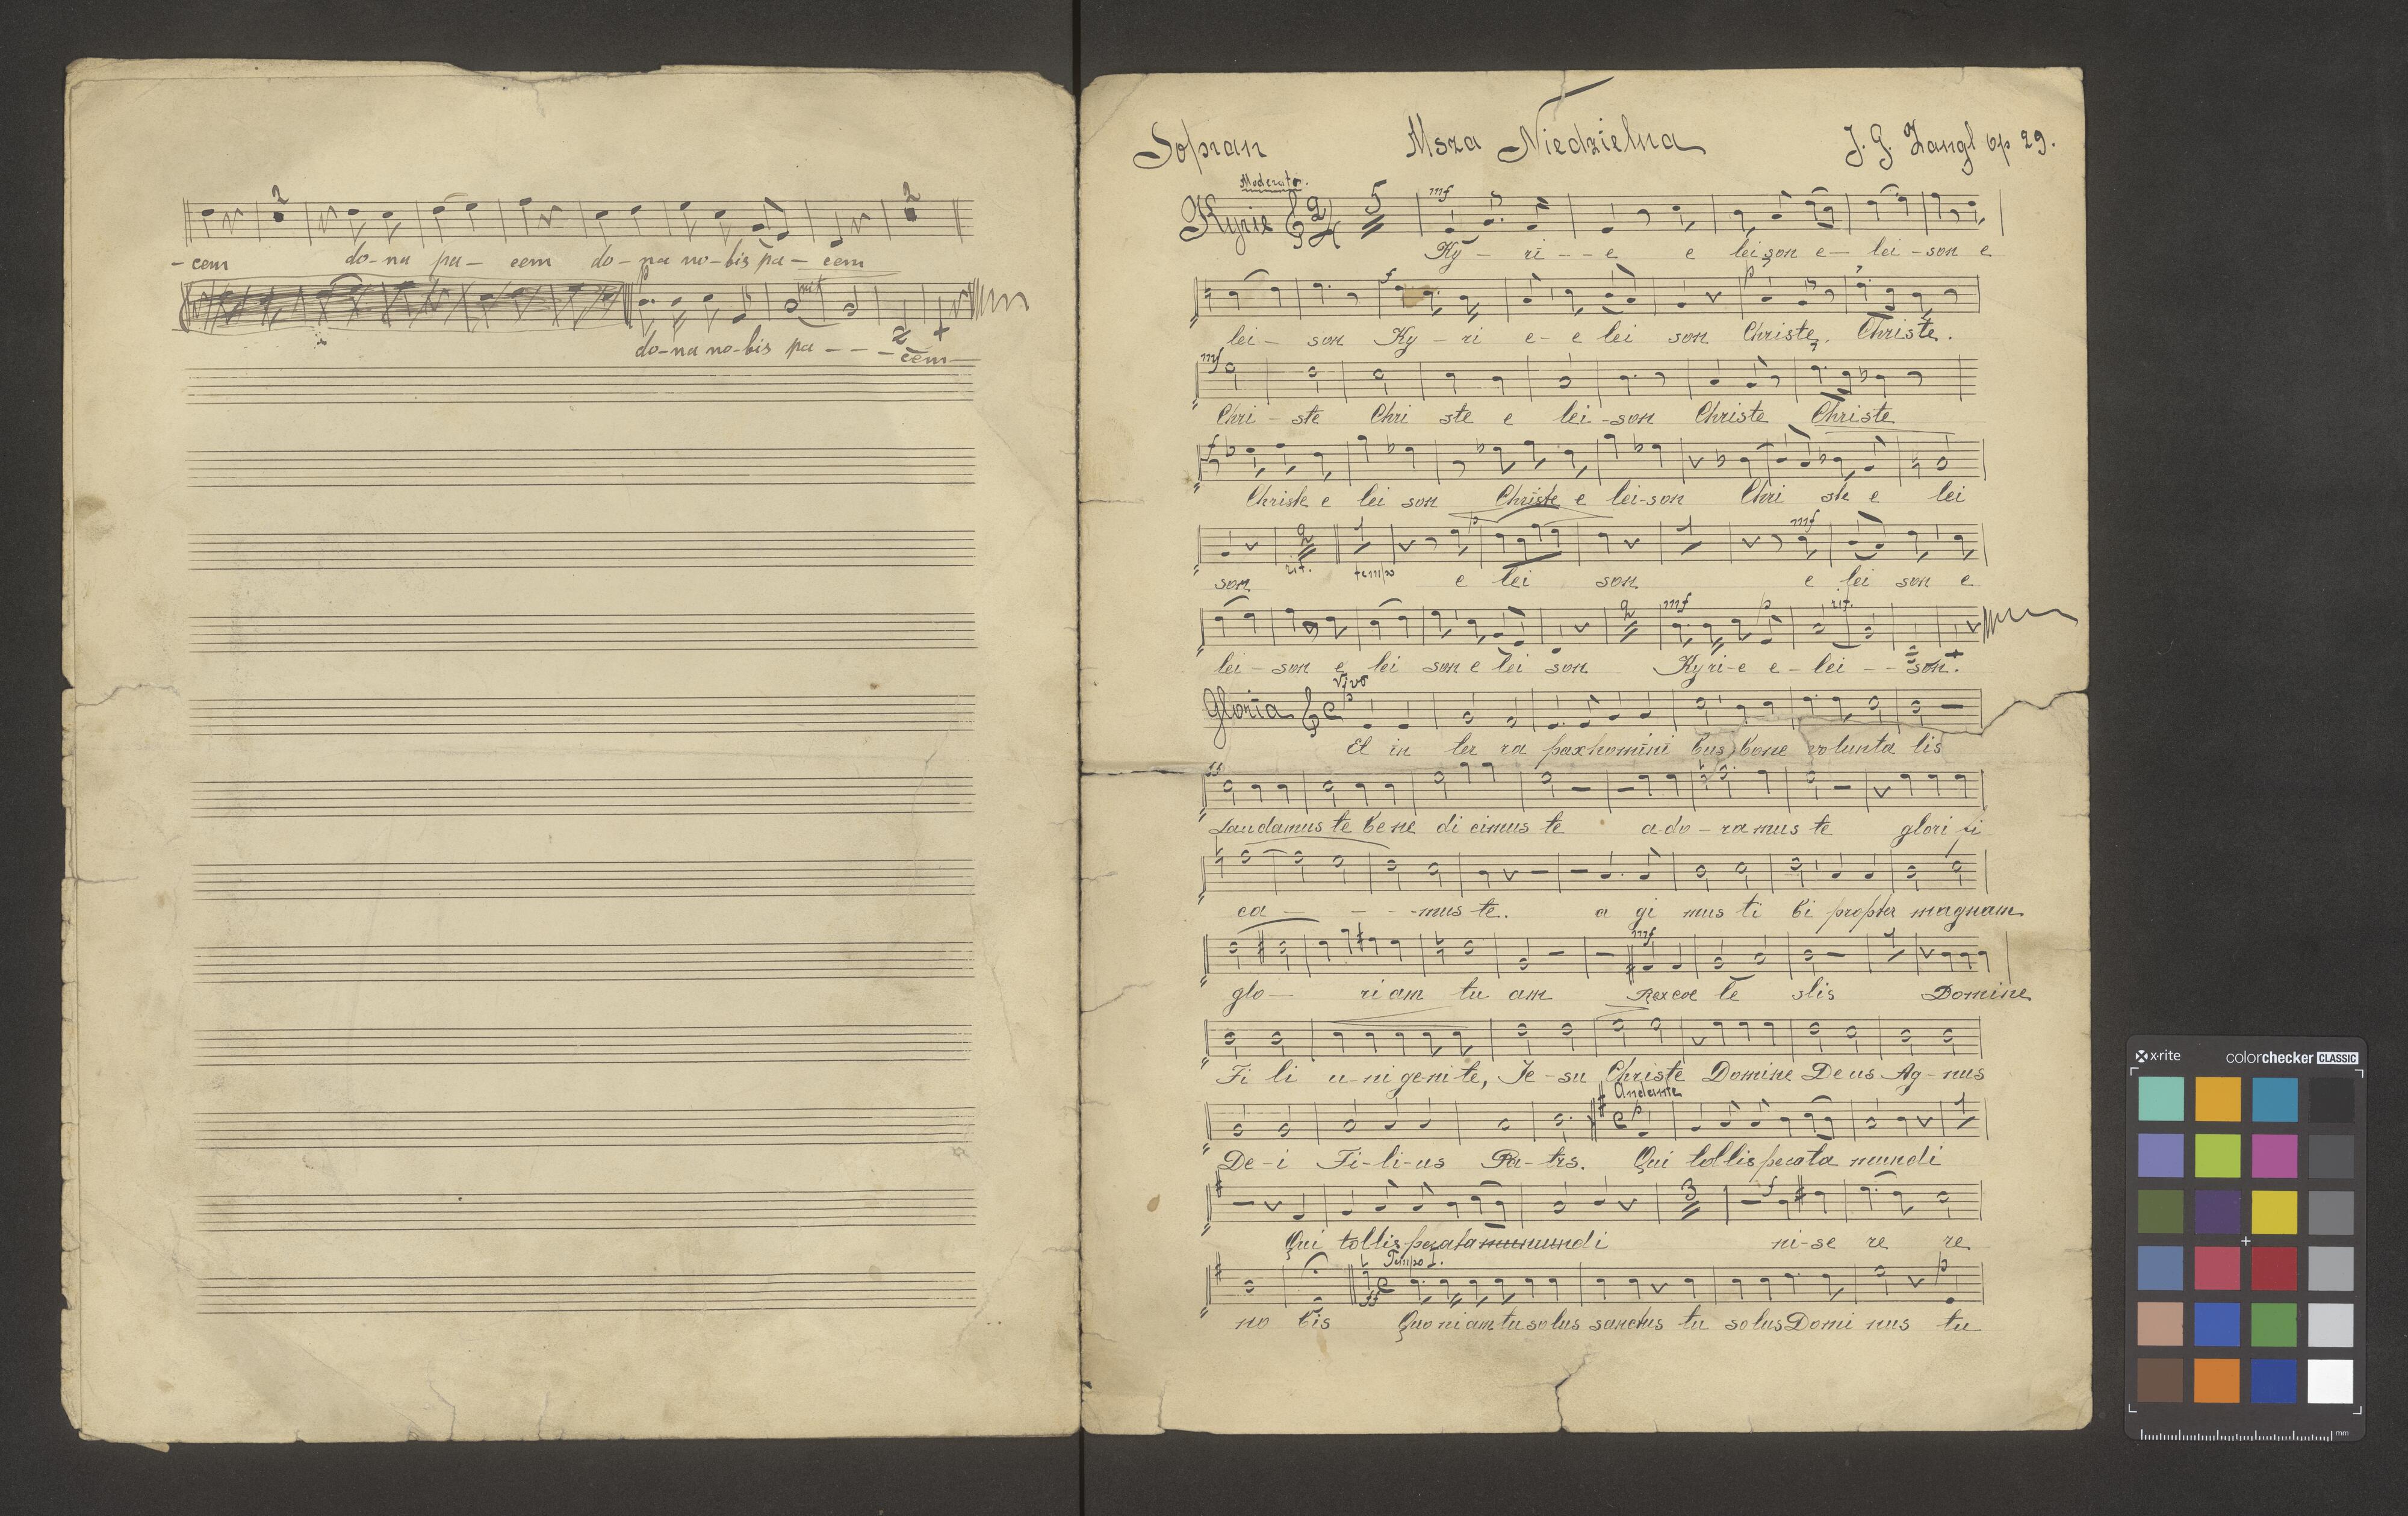 2 2
-cem do-na pa- cem do-na no-bis pa-cem
p rit
do-na no-bis pa - - - cem
Sopran Msza Niedzielna J. G. Zangl op 29.
Moderato.
Kyrie 2/4 5 mf
Ky - ri - - e e leison e- lei-son e
f p
lei- son Ky-ri e- e lei son Christe, Christe.
mf
Chri-ste Chri ste e lei-son Christe Christe
f
Christe e lei son Christe e lei-son Chri ste e lei
2 1 p 1 mf
rit. tempo
son e lei son e lei son e
2 mf p rit.
lei-son e lei son e lei son Kyri-e e-lei - - son.
Vivo
Gloria C p
Et in ter ra pax homini bus bone volunta tis
ff
Laudamus te bene dicimus te ado-ramus te glori fi
ca - - - -mus te. a gi mus ti bi propter magnam
mf 1
glo- riam tu am Rex coe le stis Domine
Fi li u-ni geni te, Je-su Christe Domine Deus Ag-nus
Andante
C p 1
De-i Fi-li-us Pa-tris. Qui tollis pecata mundi
3 f
Qui tollis pecata mumundi mi-se re re
Tempo I.
ff C p
no bis Quoniam tu solus sanctus tu solus Domi nus tu
x·rite colorchecker CLASSIC
mm